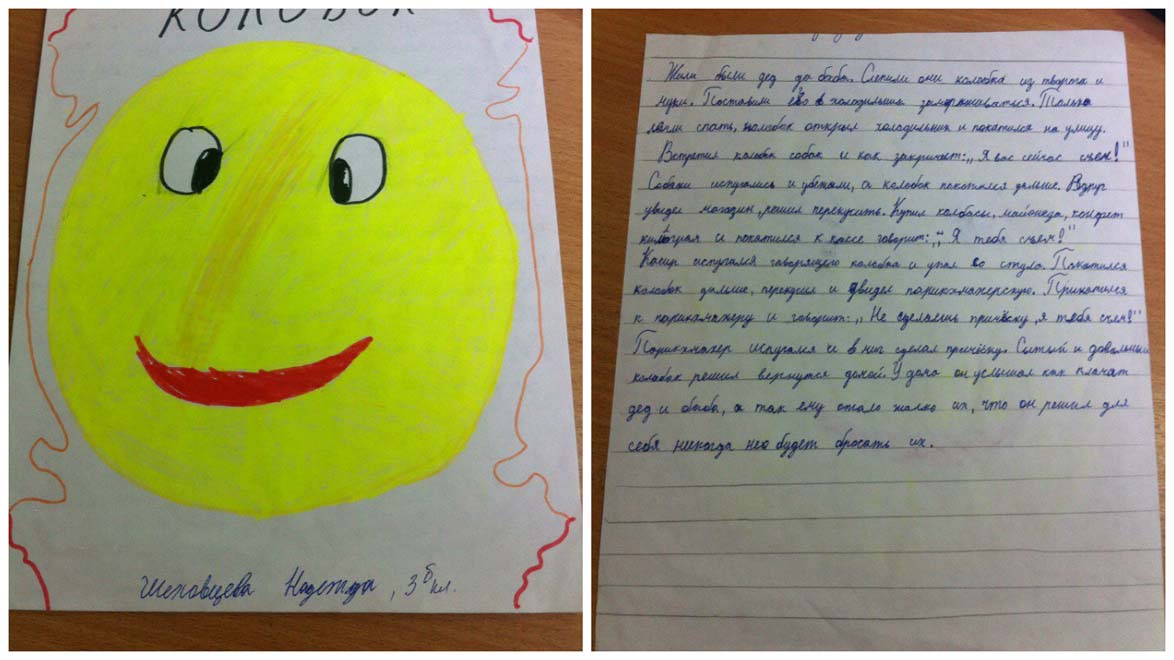 КОЛОБОК
Шеховцева Надежда, 3б кл.
Жили были дед да баба. Слепили они колобка из творога и
муки. Поставили его в холодильник замораживаться. Только
легли спать, колобок открыл холодильник и покатился на улицу.
Встретил колобок собак и как закричит: „Я вас сейчас съем!"
Собаки испугались и убежали, а колобок покатился дальше. Вдруг
увидел магазин, решил перекусить. Купил колбасы, майонеза, конфет
килограм и покатился к кассе говорит: „Я тебя съем!"
Касир испугался говорящего колобка и упал со стула. Покатился
колобок дальше, перекусил и увидел парикмахерскую. Прикатился
к парикмахеру и говорит: „Не сделаешь причёску, я тебя съем!"
Парикмахер испугался и в миг сделал причёску. Сытый и довольный
колобок решил вернутся домой. У дома он услышал как плачат
дед и баба, а так ему стало жалко их, что он решил для
себя некогда не будет бросать их.